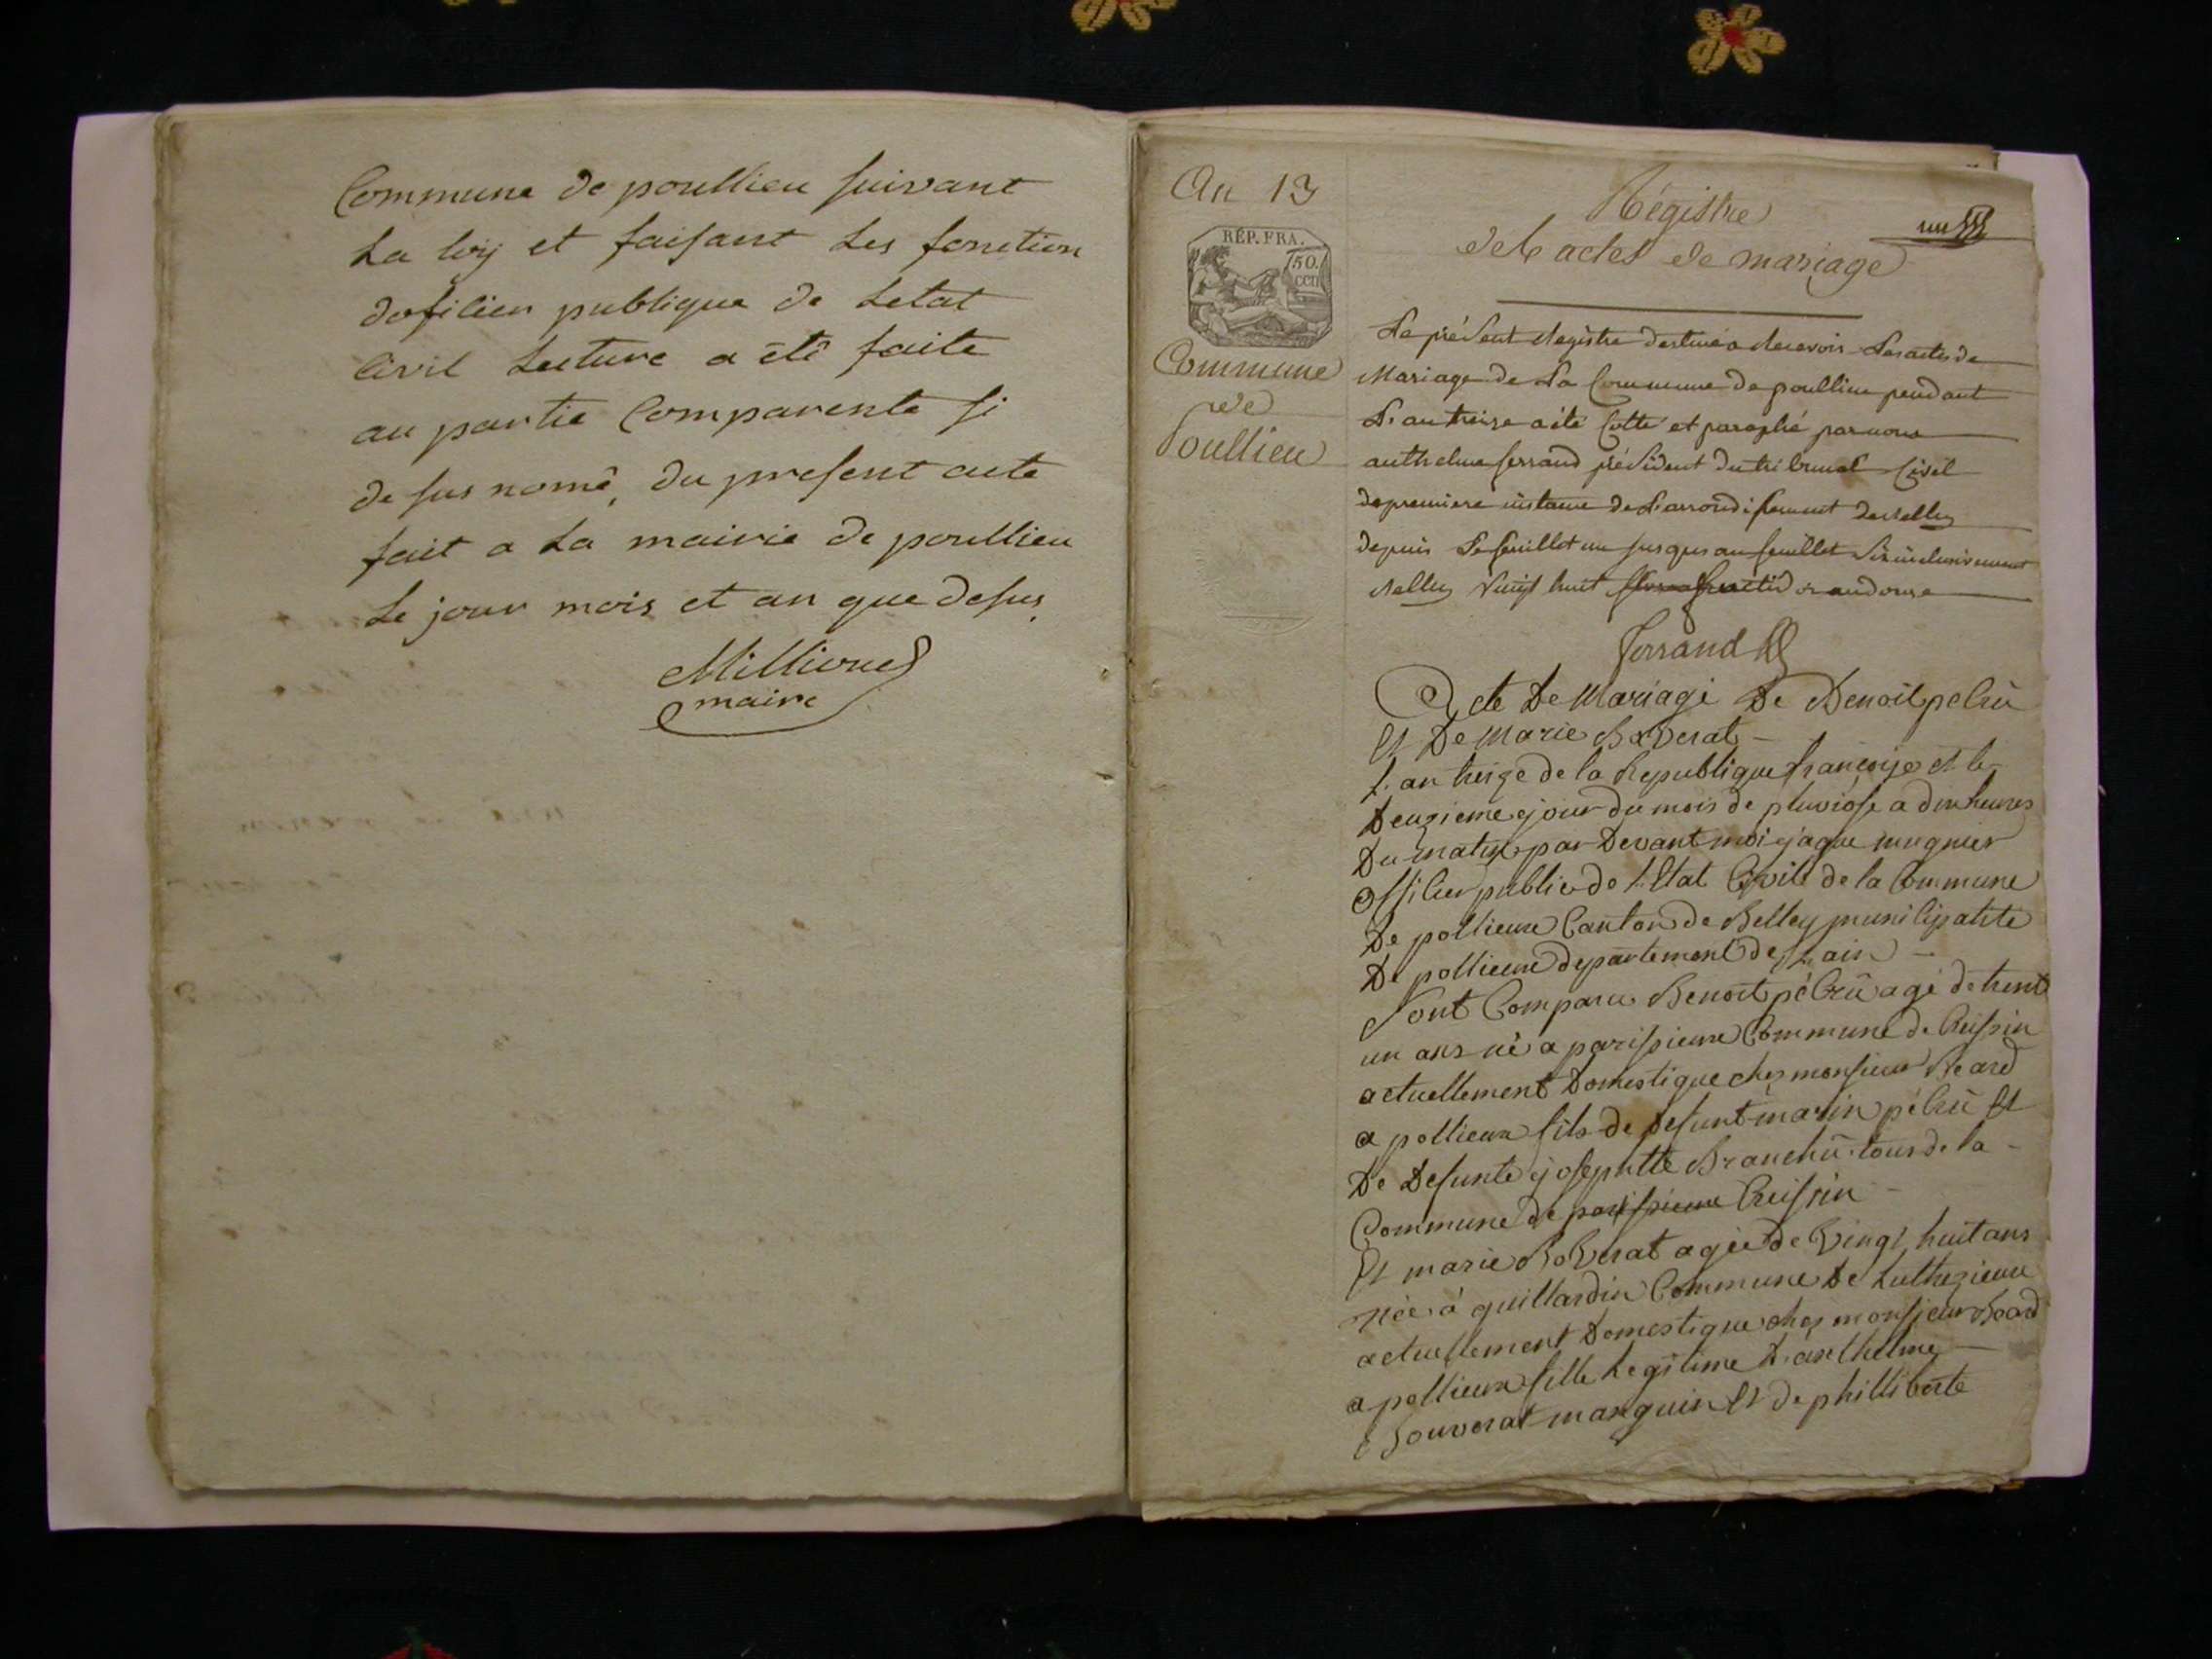 Commune de poullieu suivant
La loÿ et faisant Les fonction
dofilier publique de Letat
Civil Lecture a été faite
au partie Comparente si
de sus nomé, du present acte
fait a La mairie de poullieu
Le jour mois et an que desus.
maire
An 13
RÉP. FRA.
50.
Commune
de
Poullieu
Régistre
des actes de mariage
un
Le présent Registre destiné a Recevoir Les actes de
Mariage de La Commune de poullieu pendant
L'an treize a été Cotté et paraphé par nous
anthelme ferrand président du tribunal Civil
de premiere instance de L'arrondissement de Belley
depuis Le feuillet un jusques au feuillet Six inclusivement
Belley Vingt huit fructidor an douze
ferrand
Acte De Mariage De Benoit pelru
Et De Marie Boverat
L'an treize de la Republique françoise et le
Deuzieme jour du mois de pluviose a dix heures
Du matin par Devant moi jaque mugnier
offilier public de L'Etat Civile de la Commune
De pollieux Canton de Belley munilipalité
De pollieux departement de L'ain
Sont Comparu Benoit pélrû agé de trent
un ans né a parissieux Commune de Ceissin
actuellement Domestique chez monsieur Beard
a pollieux fils de defunt marin pélrû Et
De Defunte josephtte Branchû tous de la
Commune de parissieux Ceissin
Et marie Boverat agée de Vingt huit ans
née à guillardin Commune De Luthezieux
actuellement Domestique chez monsieur Beard
a pollieux fille Legitime D'anthelme
Bouverat manguin Et de philliberte